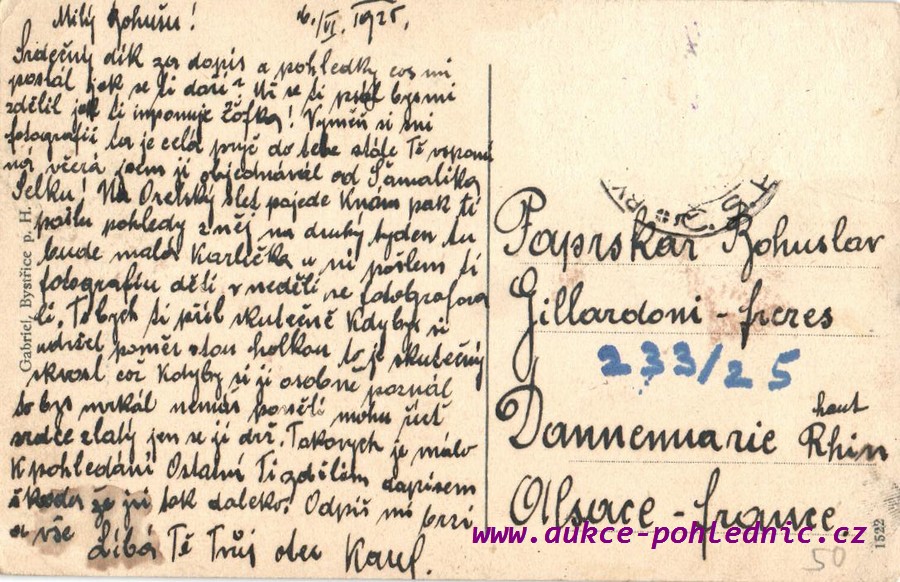 Milý Bohušu! 6./VI. 1925.
Srdečný dík za dopis a pohledky cos mi
poslal jak se ti daří? Už se ti psal bys mi
zdělil jak ti imponuje Žofka! Vyměň si sni
fotografii ta je celá pryč do tebe stále Tě vspomí
ná včera jsem ji objednával od Šamalíka
Selku! Na Orelský slet pojede Knám pak ti
pošlu pohledy z něj na druhý tyden tu
bude malá Karlička u ni pošlem ti
fotografiu děti v neděli se fotografova
li. To bych ti přál skutečně Kdyby si
udržel poměr stou holkou to je skutečný
skvost což Kdyby si ji osobně poznal
to bys mrkál nemáš ponětí mohu říct
srdce zlatý jen se ji drž. Takovych je málo
K pohledání Ostatní Ti zdělím dopisem
škoda že jsi tak daleko! Odpiš mi brzi
a vše
Líbá Tě Tvůj otec Karel.
Gabriel, Bystřice p. H.
Paprskář Bohuslav
Gillardoni - freres
233/25
Dannemarie haut Rhin
Alsace - france.
1522
50
www.aukce-pohlednic.cz